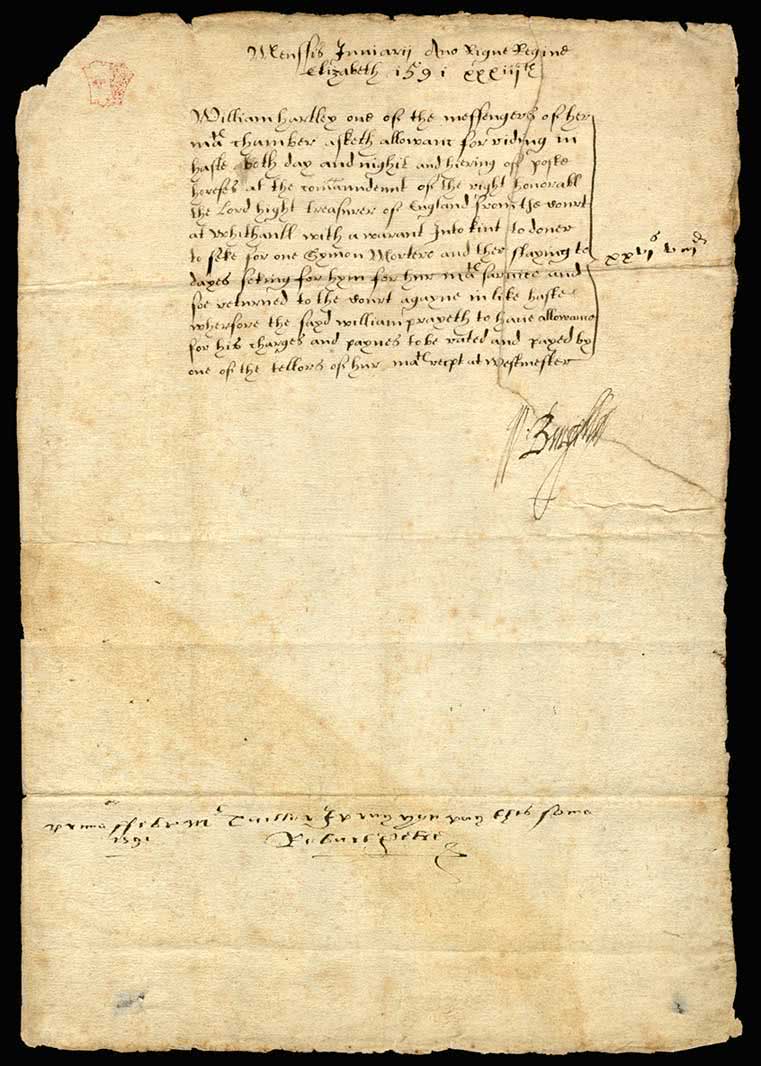 Menssis Januarij Ano Rigne Regine
Elizabeth 1591 xxxiiijth
William hartley one of the messengers of her
matis chamber asketh allowanc for riding in
haste both day and night and hiering of poste
horeses at the comaundemt of the right honorabll
the Lord hight treasurer of England from the Court
at Whithaull with a warant Into kint to doner
to seke for one Symon Mortere and ther staying to
dayes seking for hym for hur matis sarvice and
soe returned to the Court agayne in like haste
wherfore the sayd william prayeth to have allowanc
for his charges and paynes to be rated and payed by
one of the tellors of hur matis recpt at Westmester
xxvjs viijd
W. Burghley
primo ffebr Mr Tailler I pray yow pay this some
1591 Robart Petre